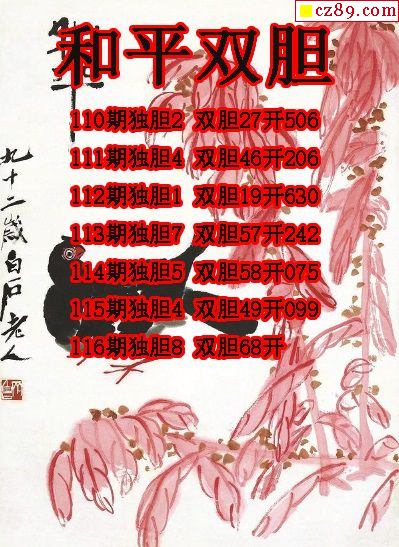 cz89.com
和平双胆
110期独胆2 双胆27开506
111期独胆4 双胆46开206
112期独胆1 双胆19开630
113期独胆7 双胆57开242
114期独胆5 双胆58开075
115期独胆4 双胆49开099
116期独胆8 双胆68开
九十二岁白石老人